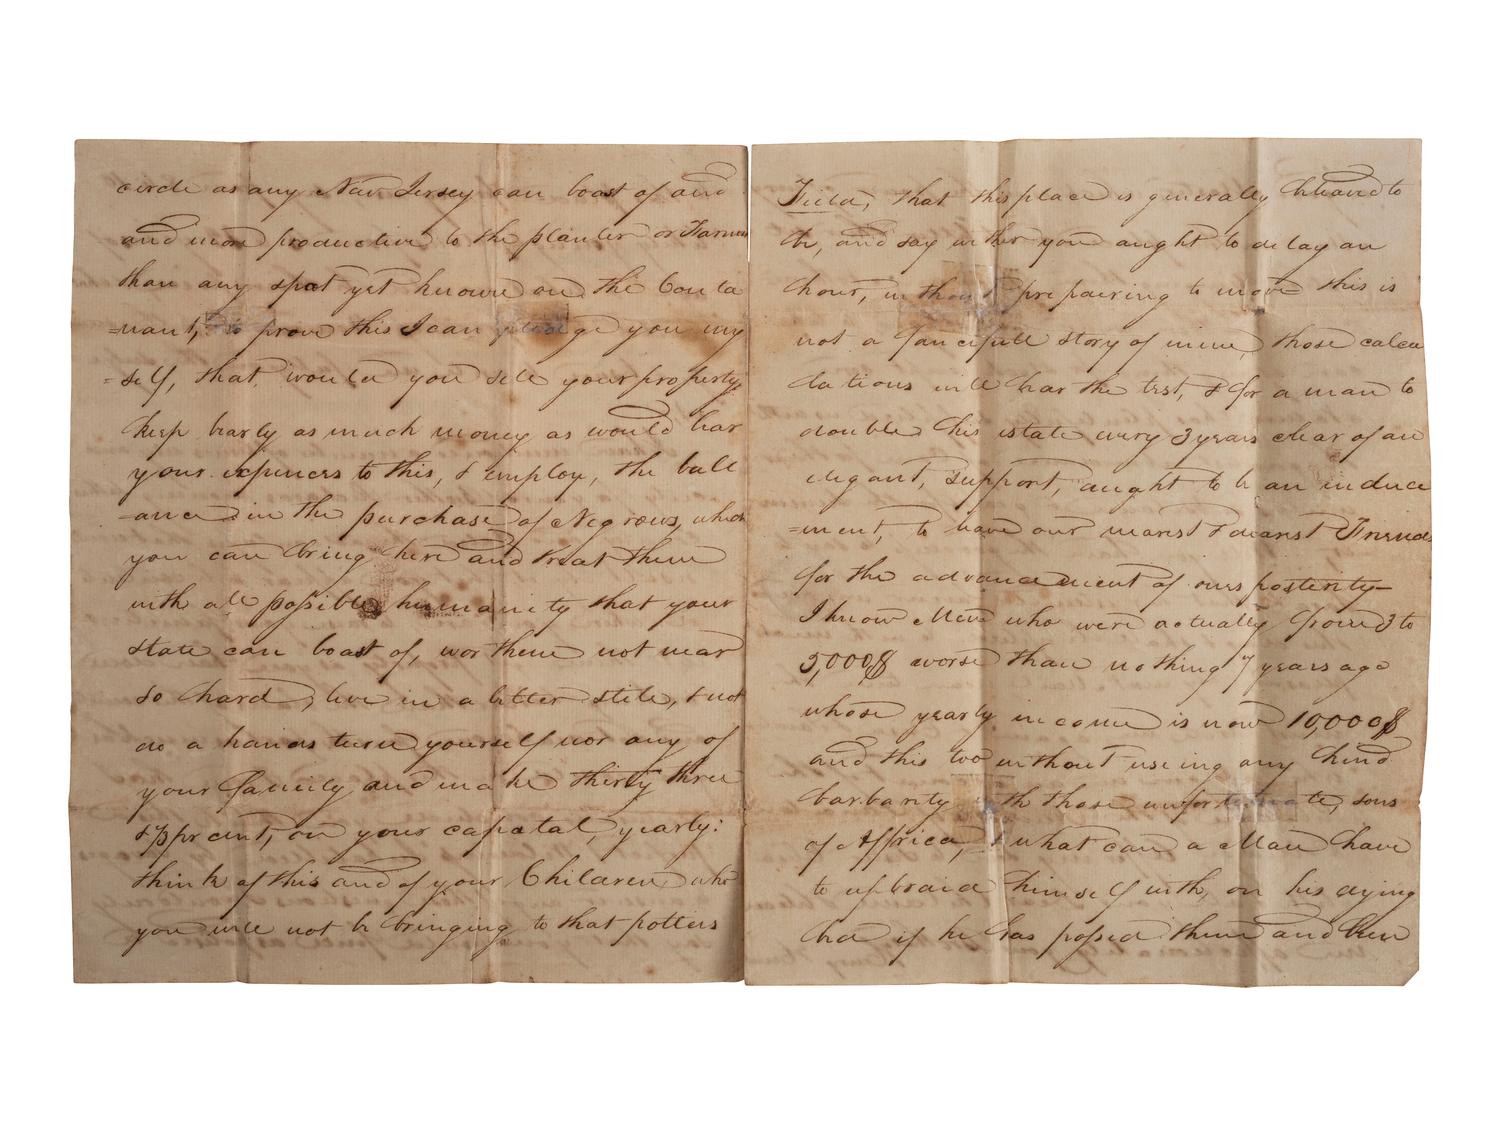 circle as any New Jersey can boast of and
and more productive to the planter or Farmer
than any spot yet known on the Conta
=nant, to prove this I can pledge you my
=self, that would you sele your property,
keep barly as much money as would bar
your expences to this, & employ, the ball
=ance in the purchase of Negrows, which
you can bring here and treat them
with all possible humanity that your
state can boast of, wor them not near
so hard, live in a better stile, & not
do a hands turn yourself nor any of
your family and make thirty three
& ⅓ prcent, on your capatal, yearly:
think of this and of your Children, who
you will not be bringing to that potters
Field, that this place is generally bleaved to
be, and say wither you aught to delay an
hour, in thout prepairing to move this is
not a fancifull story of mine, those calcu
lations will bar the test, & for a man to
double his estate every 3 years clear of an
elegant, support, aught to be an induce
=ment, to leave our nearest & dearest Friends
for the advancement of ours posterity—
I know Men who were actually from 3 to
5,000$ worse than nothing 7 years ago
whose yearly income is now 10,000$
and this too without useing any kind
barbarity with those unfortunate, sons
of Affrica, & what can a Man have
to upbraid himself with, on his dying
bed if he has possed them and been